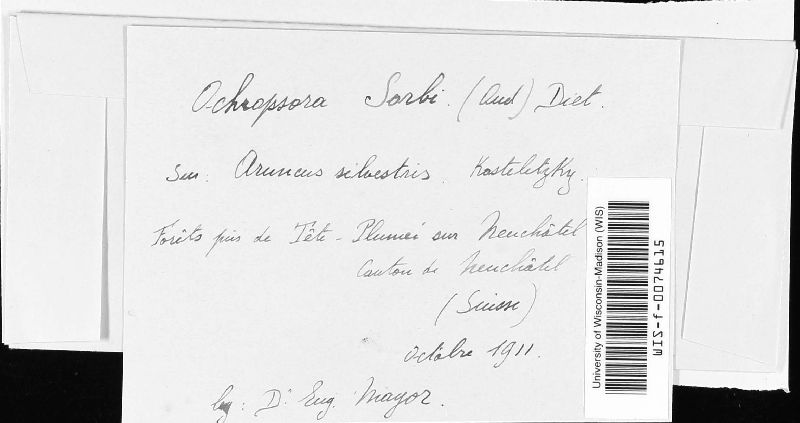 Ochropsora Sorbi. (Oud) Diet.
sur. Aruncus silvestris. Kosteletzky.
Forêts près de Tête-Plumée sur Neuchâtel
Canton de Neuchâtel
(Suisse)
Octobre 1911.
leg: Dr Eug. Mayor.
University of Wisconsin-Madison (WIS)
WIS-f-0074615